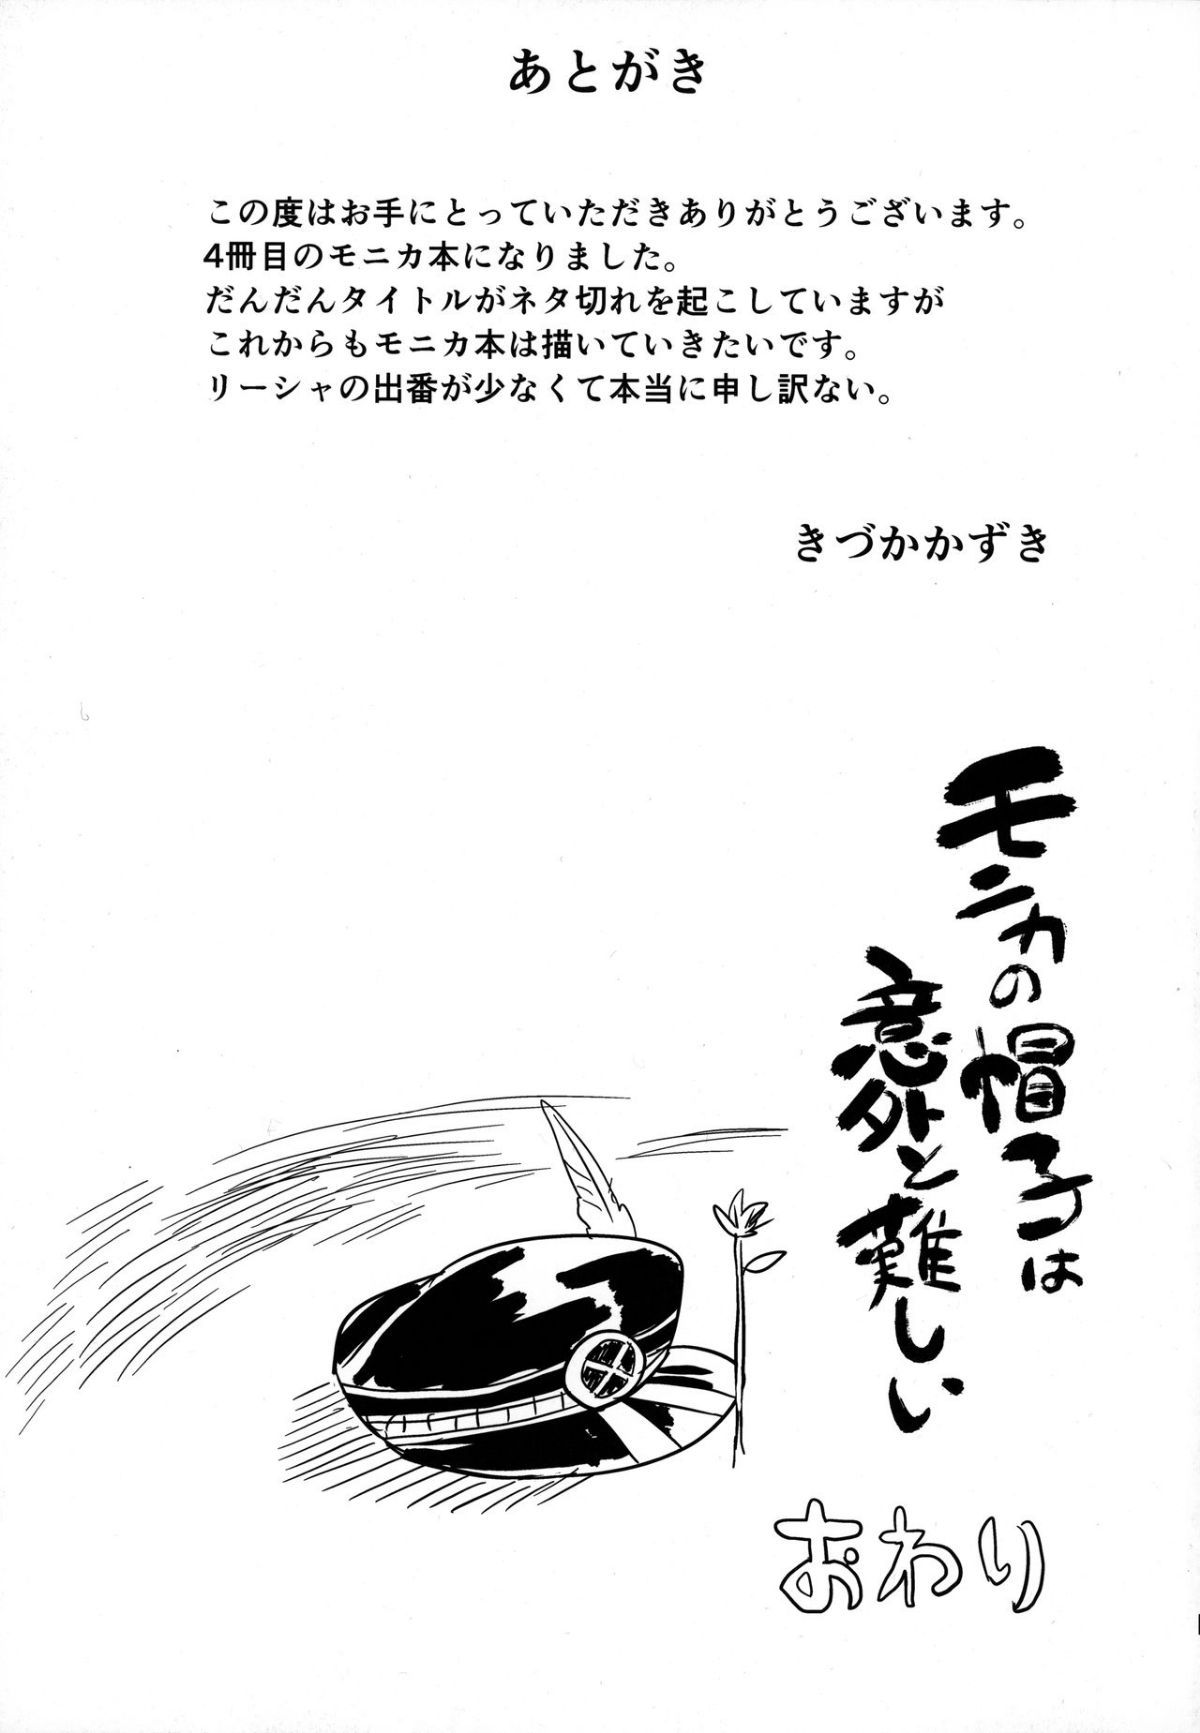 あとがき
この度はお手にとっていただきありがとうございます。
4冊目のモニカ本になりました。
だんだんタイトルがネタ切れを起こしていますが
これからもモニカ本は描いていきたいです。
リーシャの出番が少なくて本当に申し訳ない。
きづかかずき
モニカの帽子は
意外と難しい
おわり